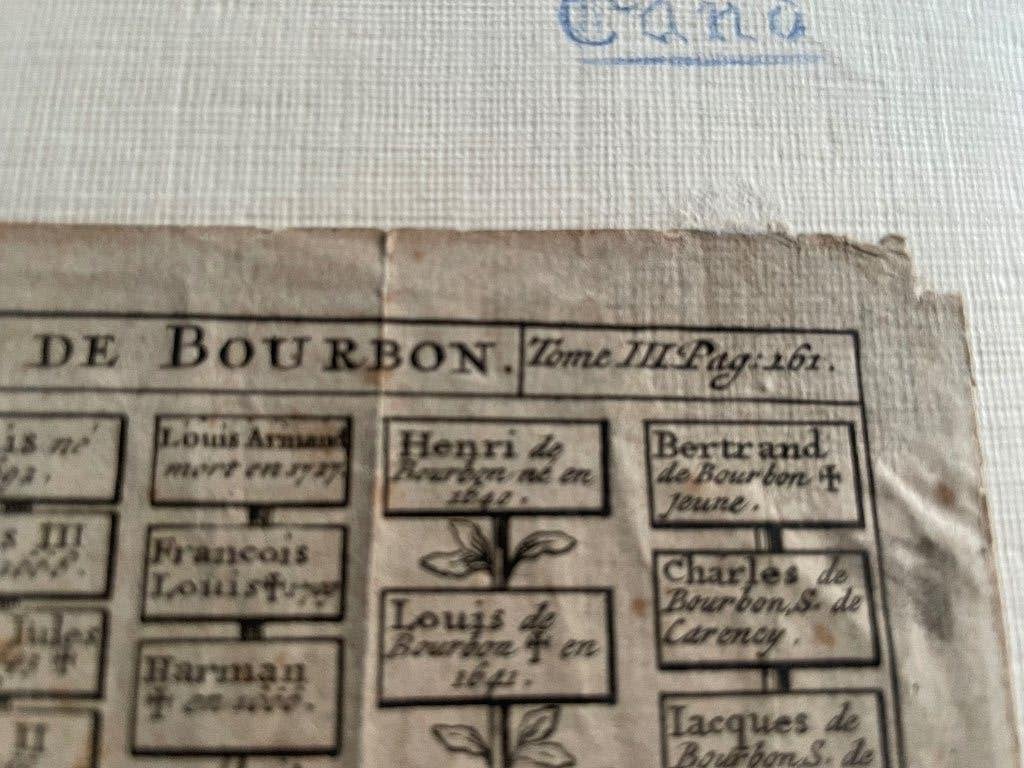 Cano
DE BOURBON.
Tome III. Pag: 161.
is né
Louis Armand
mort en 1727.
Henri de
Bourbon né en
1642.
Bertrand
de Bourbon ✝
jeune.
s III
Francois
Louis ✝
Charles de
Bourbon, S. de
Carency.
Jules
✝
Harman
✝ en 1666.
Louis de
Bourbon ✝ en
1641.
II
Iacques de
Bourbon, S. de